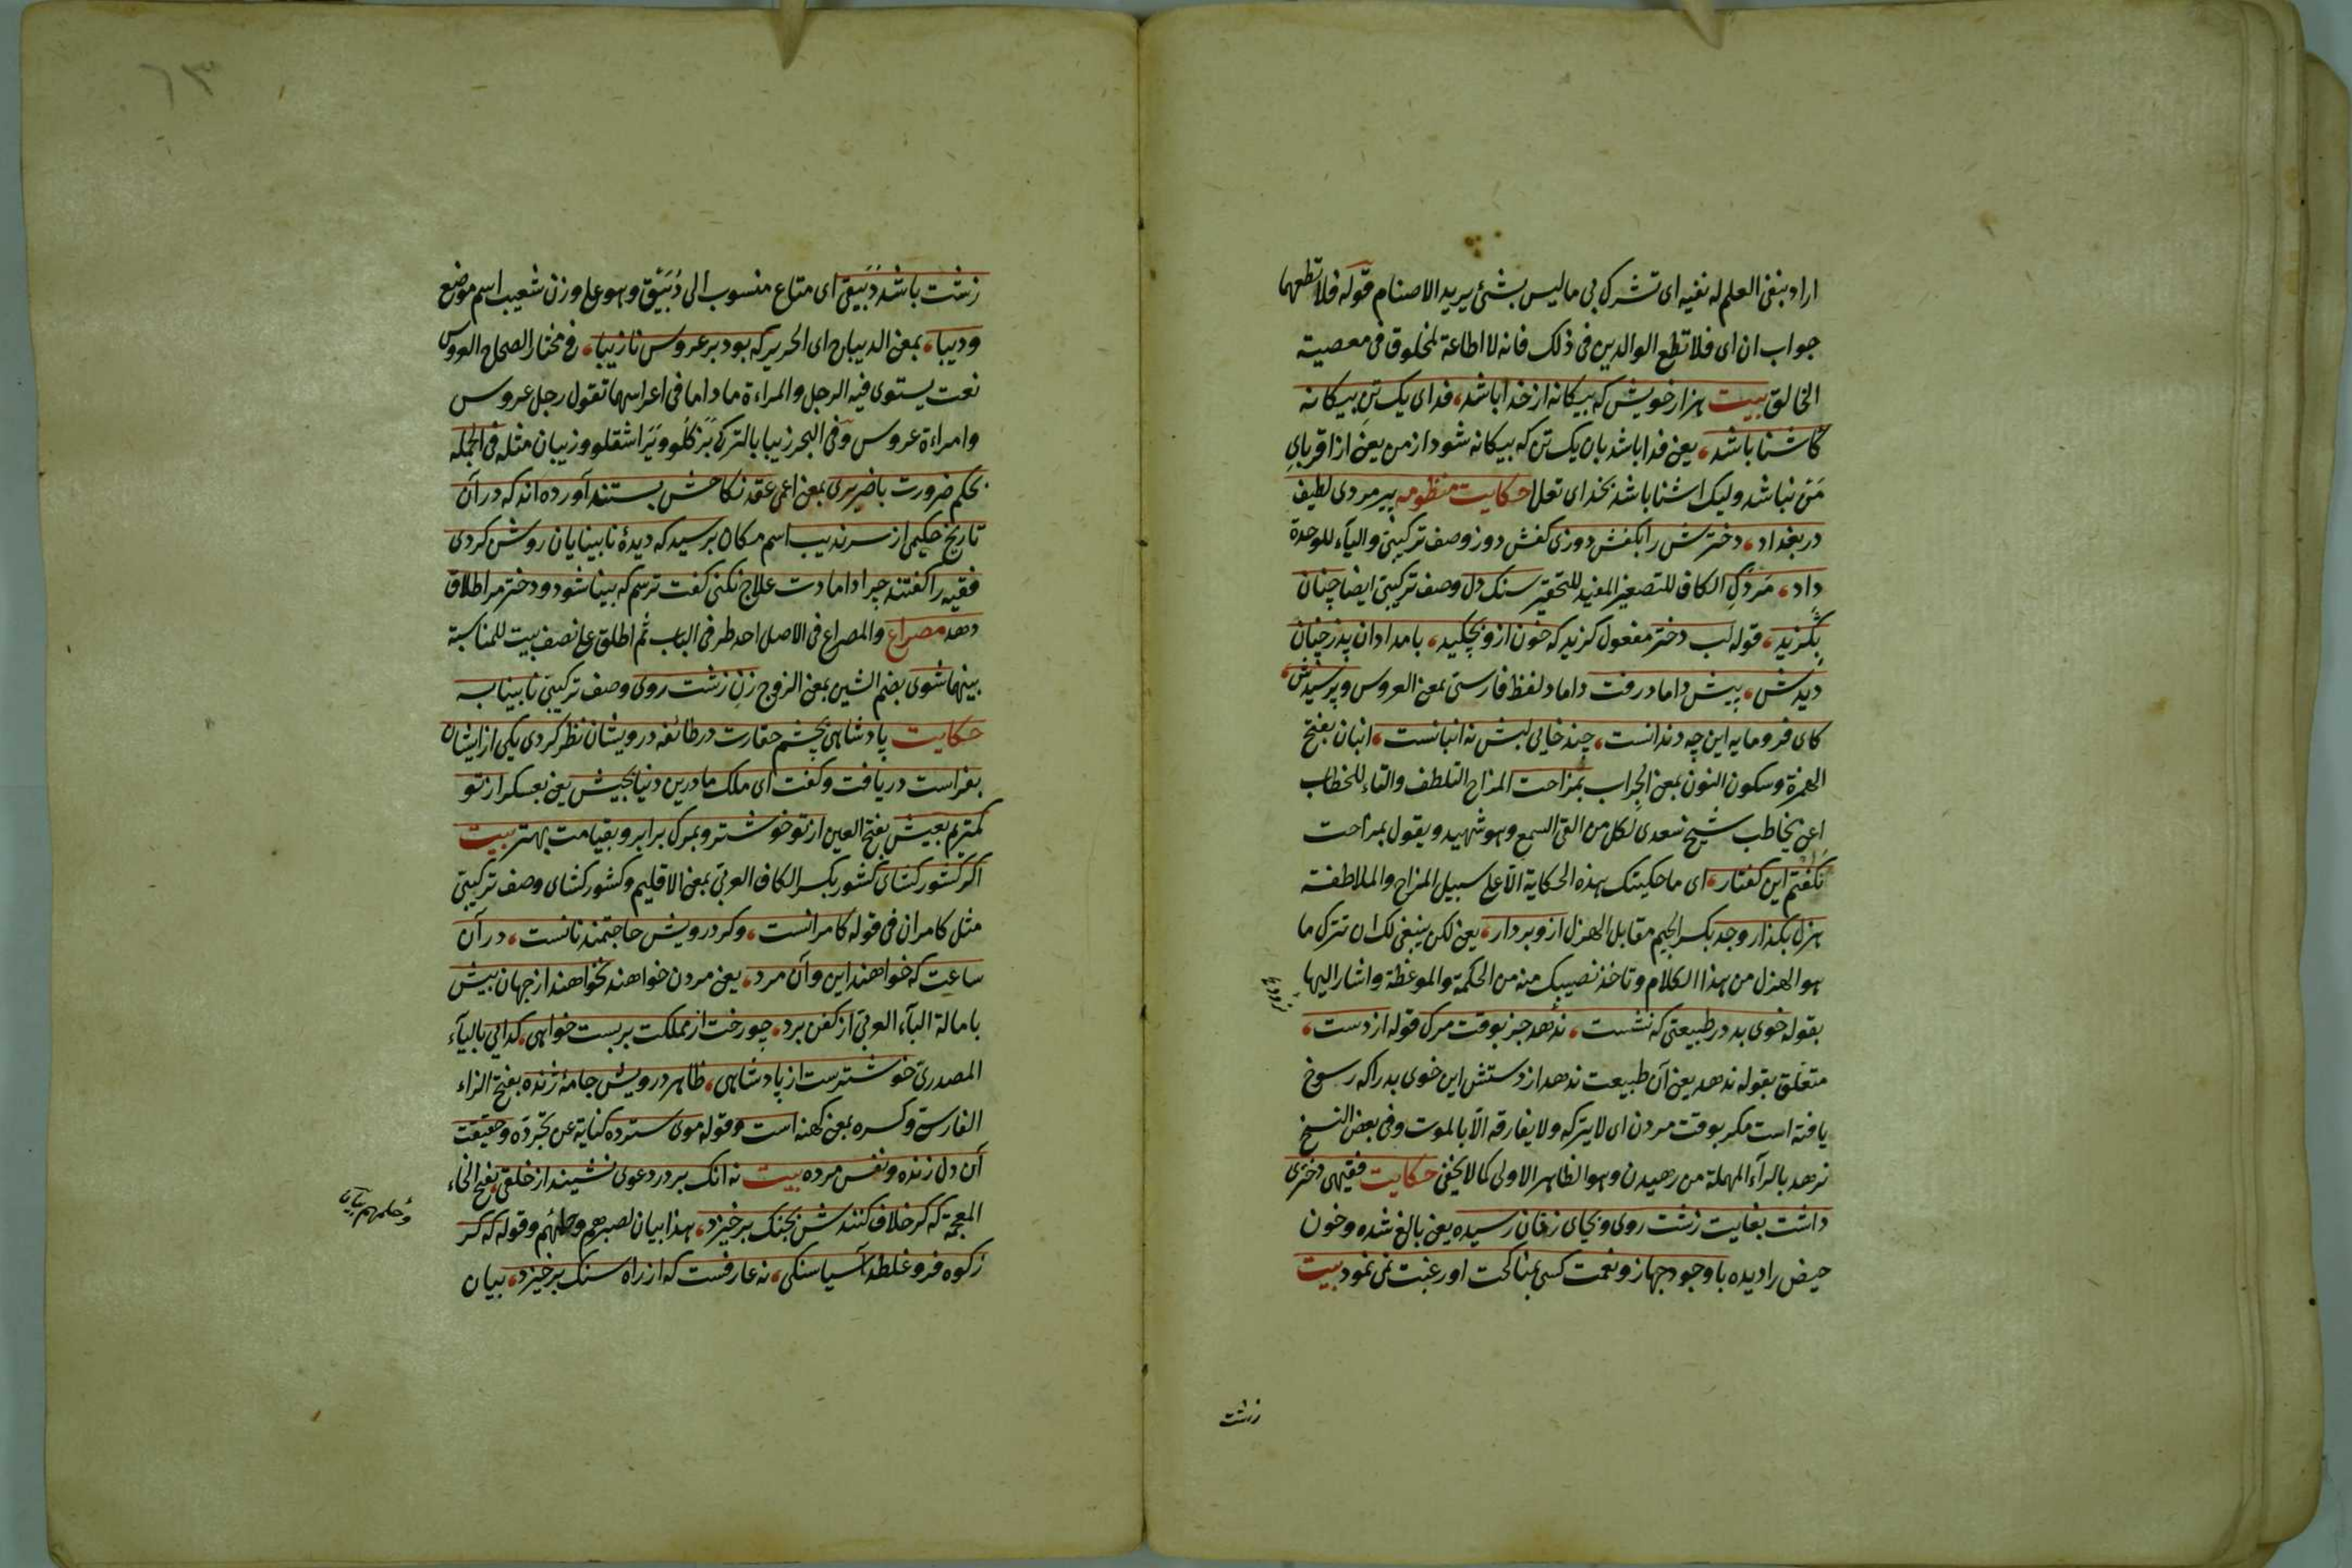 اراد بنفی العلم له نفیه ای تشرک بی ما لیس بشئ یرید الاصنام قوله فلا تطعهما
جواب ان ای فلا تطع الوالدین فی ذلک فانه لا اطاعة لمخلوق فی معصیة
الخالق بیت هزار خویش که بیکانه از خدا باشد، فدای یک تن بیکانه
کاشنا باشد، یعنی فدا باشد بان یک تن که بیکانه شود از من یعنی از اقربای
من نباشد ولیک اشنا باشد بخدای تعلا حکایت منظومه پیرمردی لطیف
در بغداد، دخترش را بکفش دوزی کفش دوز وصف ترکیبی والیآء للوحدة
داد، مردک الکاف للتصغیر المفید للتحقیر سنک دل وصف ترکیبی ایضا چنان
بکزید، قوله لب دختر مفعول کزید که خون ازو بچکید، بامدادان پدر چنان
دیدش، پیش داماد رفت داماد لفظ فارسی بمعنی العروس و پرسیدش،
کای فرومایه این چه دندانست، چند خایی لبش نه انبانست، انبان بفتح
الهمزة وسکون النون بمعنی الجراب بمزاحت المزاح التلطف والتاء للخطاب
اعنی یخاطب شیخ سعدی لکل من القی السمع وهو شهید و یقول بمزاحت
نکفتم این کفتار، ای ما حکیتک هذه الحکایة الا علی سبیل المزاح والملاطفة
هزل بکذار وجد بکسر الجیم مقابل الهزل ازو بردار، یعنی لکن ینبغی لک ان تترک ما
هو الهزل من هذا الکلام وتاخذ نصیبک منه من الحکمة والموعظة واشار الیها
بقوله خوی بد در طبیعتی که نشست، ندهد جز بوقت مرک قوله از دست،
متعلق بقوله ندهد یعنی آن طبیعت ندهد از دستش این خوی بد را که رسوخ
یافته است مکر بوقت مردن ای لا یترکه ولا یفارقه الا بالموت وفی بعض النسخ
نرهد بالرآء المهملة من رهیدن وهو الظاهر الاولی کما لا یخفی حکایت فقیهی دختری
داشت بغایت زشت روی و بجای زنان رسیده یعنی بالغ شده وخون
حیض را دیده با وجود جهاز و نعمت کسی بمناکحت او رغبت نمی نمود بیت
زشت
زشت باشد دبیقی ای متاع منسوب الی دبیق وهو علی وزن شعیب اسم موضع
ودیبا، بمعنی الدیباج ای الحریر که بود بر عروس نازیبا، وفی مختار الصحاح العروس
نعت یستوی فیه الرجل والمراءة ما داما فی اعراسهما تقول رجل عروس
وامراءة عروس وفی البحر زیبا بالترکی بزکلو ویراشقلو وزیبان مثله فی الجمله
بحکم ضرورت با ضریری بمعنی اعمی عقد نکاحش بستند آورده اند که در آن
تاریخ حکیمی از سرندیب اسم مکان برسید که دیدهٔ نابینایان روشن کردی
فقیه را کفتند چرا دامادت علاج نکنی کفت ترسم که بینا شود و دخترم را طلاق
دهد مصراع والمصراع فی الاصل احد طرفی الباب ثم اطلق علی نصف بیت للمناسبة
بینهما شوی بضم الشین بمعنی الزوج زن زشت روی وصف ترکیبی نابینا به
حکایت پادشاهی بچشم حقارت در طائفه درویشان نظر کردی یکی از ایشان
بفراست دریافت و کفت ای ملک ما درین دنیا بجیش یعنی بعسکر از تو
کمتریم بعیش بفتح العین از تو خوشتر و بمرک برابر و بقیامت بهتر بیت
اکر کشور کشای کشور بکسر الکاف العربی بمعنی الاقلیم و کشور کشای وصف ترکیبی
مثل کامران فی قوله کامرانست، و کر درویش حاجتمند نانست، در آن
ساعت که خواهند این و آن مرد، یعنی مردن خواهند نخواهند از جهان بیش
بامالة البآء العربی از کفن برد، چو رخت از مملکت بربست خواهی، کدایی بالیآء
المصدری خوشترست از پادشاهی، ظاهر درویش جامهٔ ژنده بفتح الزاء
الفارسی وکسره بمعنی کهنه است وقوله موی سترده کنایة عن تجرده وحقیقت
آن دل زنده ونفس مرده بیت نه انک بر در دعوی نشیند از خلقی بفتح الخاء
المعجمة که کر خلاف کنندش بجنک برخیزد، هذا بیان لصبرهم وحلمهم وقوله که کر
زکوه فرو غلطد آسیا سنکی، نه عارفست که از راه سنک برخیزد، بیان